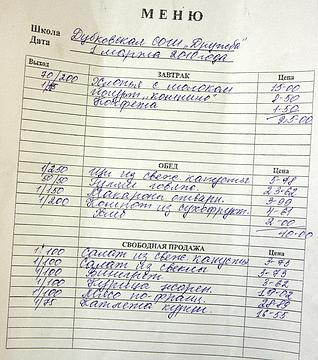 МЕНЮ
Школа Дубковская СОШ "Дружба"
Дата 1 марта 2010 года
Выход ЗАВТРАК Цена
20/200 Хлопья с молоком 15-00
Йогурт 8-50
Конфета 1-50
25-00
ОБЕД Цена
1/250 Щи из свежей капусты 5-78
50/50 Гуляш говяж. 23-62
1/150 Макароны отвари. 3-99
1/200 Компот из сухофрукт. 4-61
Хлеб 2-00
40-00
СВОБОДНАЯ ПРОДАЖА Цена
1/100 Салат из свеж капусты 3-73
1/100 Салат из свеклы
1/100 Винегрет 3-73
1/100 Курица жарен. 3-62
1/100 Мясо по-франц.
1/75 Котлета курин. 16-55